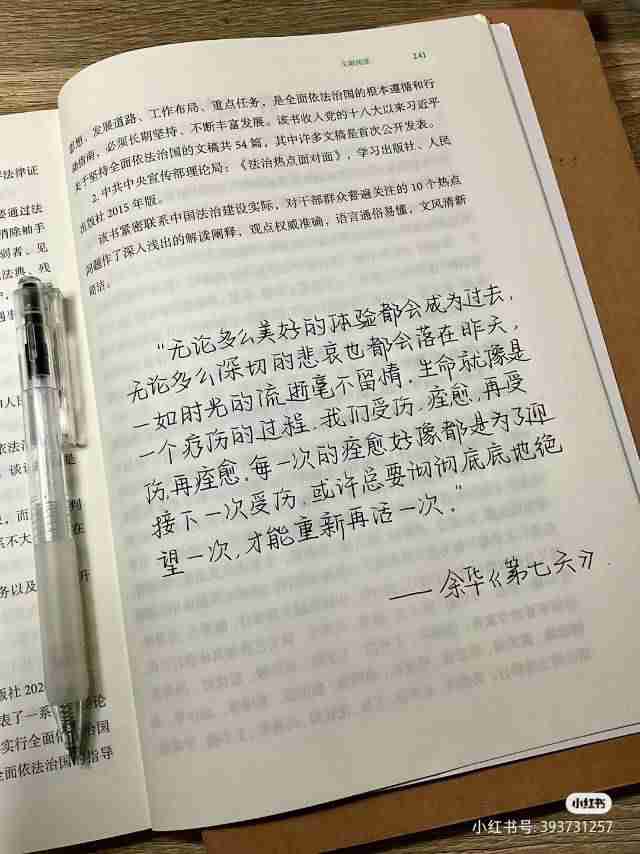 文献阅读 241
思想、发展道路、工作布局、重点任务，是全面依法治国的根本遵循和行
动指南，必须长期坚持、不断丰富发展。该书收入党的十八大以来习近平
关于坚持全面依法治国的文稿共 54 篇，其中许多文稿是首次公开发表。
2. 中共中央宣传部理论局：《法治热点面对面》，学习出版社、人民
出版社 2015 年版。
该书紧密联系中国法治建设实际，对干部群众普遍关注的 10 个热点
问题作了深入浅出的解读阐释，观点权威准确，语言通俗易懂，文风清新
简洁。
“无论多么美好的体验都会成为过去，
无论多么深切的悲哀也都会落在昨天，
一如时光的流逝毫不留情，生命就像是
一个疗伤的过程，我们受伤，痊愈，再受
伤，再痊愈，每一次的痊愈好像都是为了迎
接下一次受伤，或许总要彻彻底底地绝
望一次，才能重新再活一次。”
——余华《第七天》
法律证
要通过法
消除袖手
到者、见
法典、残
谈
是
而
到
在
务以及
升
版社 202
表了一系
论
实行全面依法治国
全面依法治国的指导
小红书
小红书号: 393731257